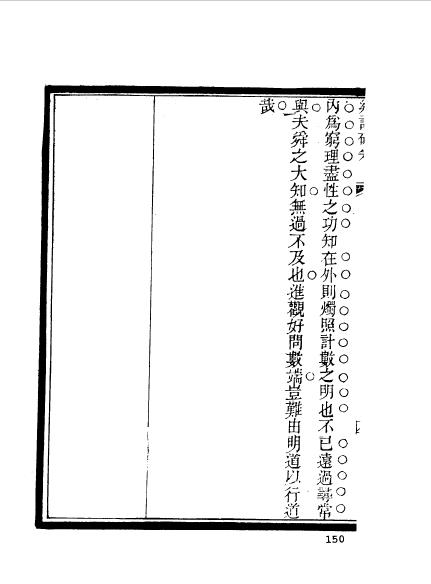 內為窮理盡性之功知在外則燭照計數之明也不已遠過尋常
與夫舜之大知無過不及也進觀好問數端豈難由明道以行道
哉
150